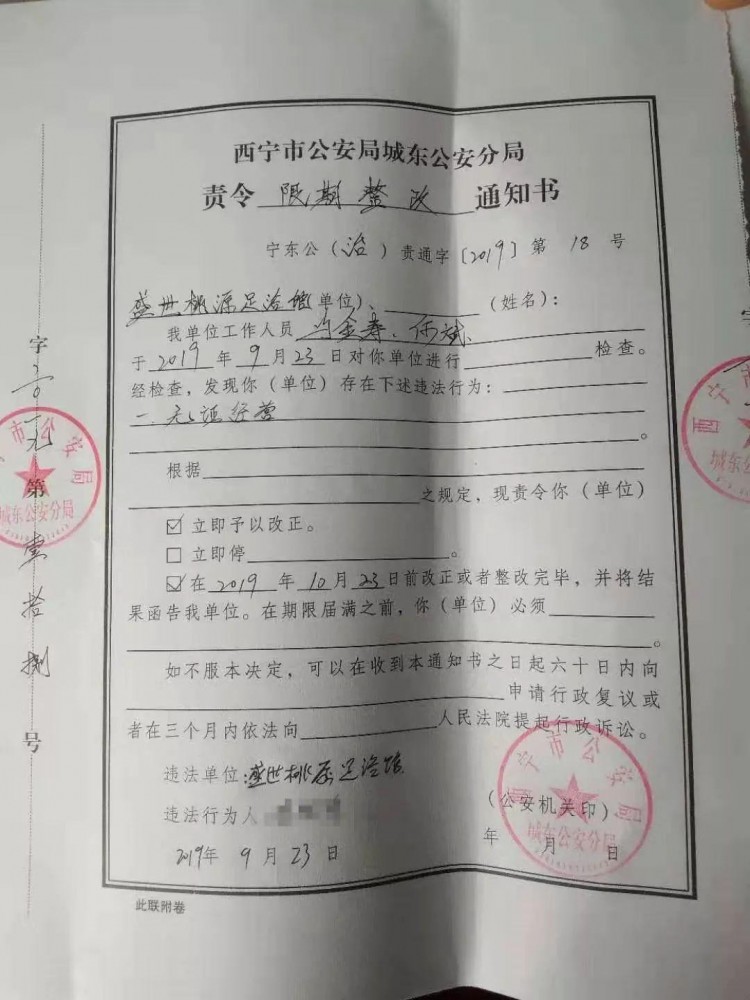 西宁市公安局城东公安分局
责令 限期整改 通知书
宁东公（治）责通字〔2019〕第 18 号
盛世桃源足浴馆(单位)、（姓名）：
我单位工作人员
于 2019 年 9 月 23 日对你单位进行 检查。
经检查，发现你（单位）存在下述违法行为：
一.无证经营
。
根据
之规定，现责令你（单位）
☑ 立即予以改正。
□ 立即停 。
☑ 在 2019 年 10 月 23 日前改正或者整改完毕，并将结
果函告我单位。在期限届满之前，你（单位）必须
。
如不服本决定，可以在收到本通知书之日起六十日内向
申请行政复议或
者在三个月内依法向 人民法院提起行政诉讼。
违法单位:盛世桃源足浴馆
违法行为人
（公安机关印）
年 月 日
2019年 9 月 23 日
此联附卷
字
第
壹
拾
捌
号
市公安局
城东公安分局
西宁市公安局
城东公安分局
西
城东
字